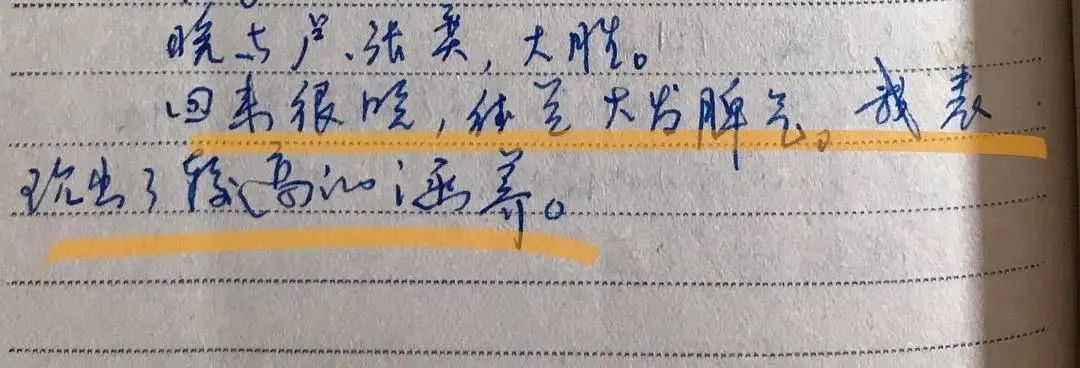 晚与卢、张奕，大胜。
回来很晚，桂兰大发脾气。我表
现出了较高的涵养。